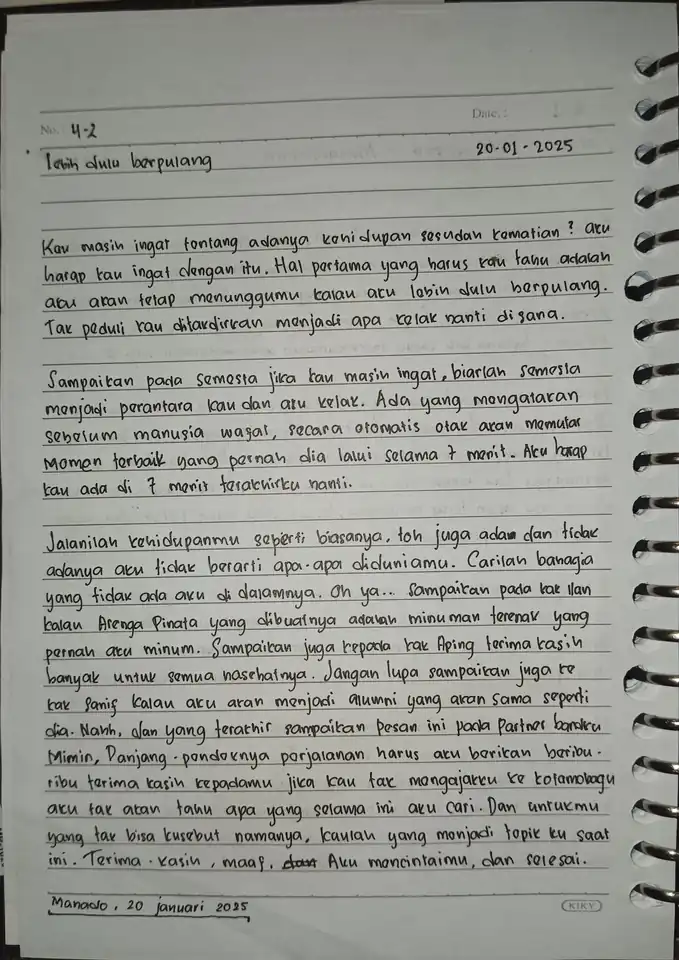 No. 4-2
Date. :
20-01-2025
lebih dulu berpulang
Kau masih ingat tentang adanya kehidupan sesudah kematian? aku
harap kau ingat dengan itu. Hal pertama yang harus kau tahu adalah
aku akan tetap menunggumu kalau aku lebih dulu berpulang.
Tak peduli kau ditakdirkan menjadi apa kelak nanti disana.
Sampaikan pada semesta jika kau masih ingat, biarlah semesta
menjadi perantara kau dan aku kelak. Ada yang mengatakan
sebelum manusia wafat, secara otomatis otak akan memutar
Momen terbaik yang pernah dia lalui selama 7 menit. Aku harap
kau ada di 7 menit terakhirku nanti.
Jalanilah kehidupanmu seperti biasanya, toh juga adan dan tidak
adanya aku tidak berarti apa-apa diduniamu. Carilah bahagia
yang tidak ada aku di dalamnya. Oh ya... Sampaikan pada kak Ilan
kalau Arenga Pinata yang dibuatnya adalah minuman terenak yang
pernah aku minum. Sampaikan juga kepada kak Aping terima kasih
banyak untuk semua nasehatnya. Jangan lupa sampaikan juga ke
kak Sanis kalau aku akan menjadi alumni yang akan sama seperti
dia. Nahh, dan yang terakhir sampaikan pesan ini pada Partner baruku
Mimin, Panjang-pendeknya perjalanan harus aku berikan beribu-
ribu terima kasih kepadamu jika kau tak mengajakku ke kotamobagu
aku tak akan tahu apa yang selama ini aku cari. Dan untukmu
yang tak bisa kusebut namanya, kaulah yang menjadi topik ku saat
ini. Terima-kasih, maaf, Aku mencintaimu, dan selesai.
Manado, 20 januari 2025
KIKY